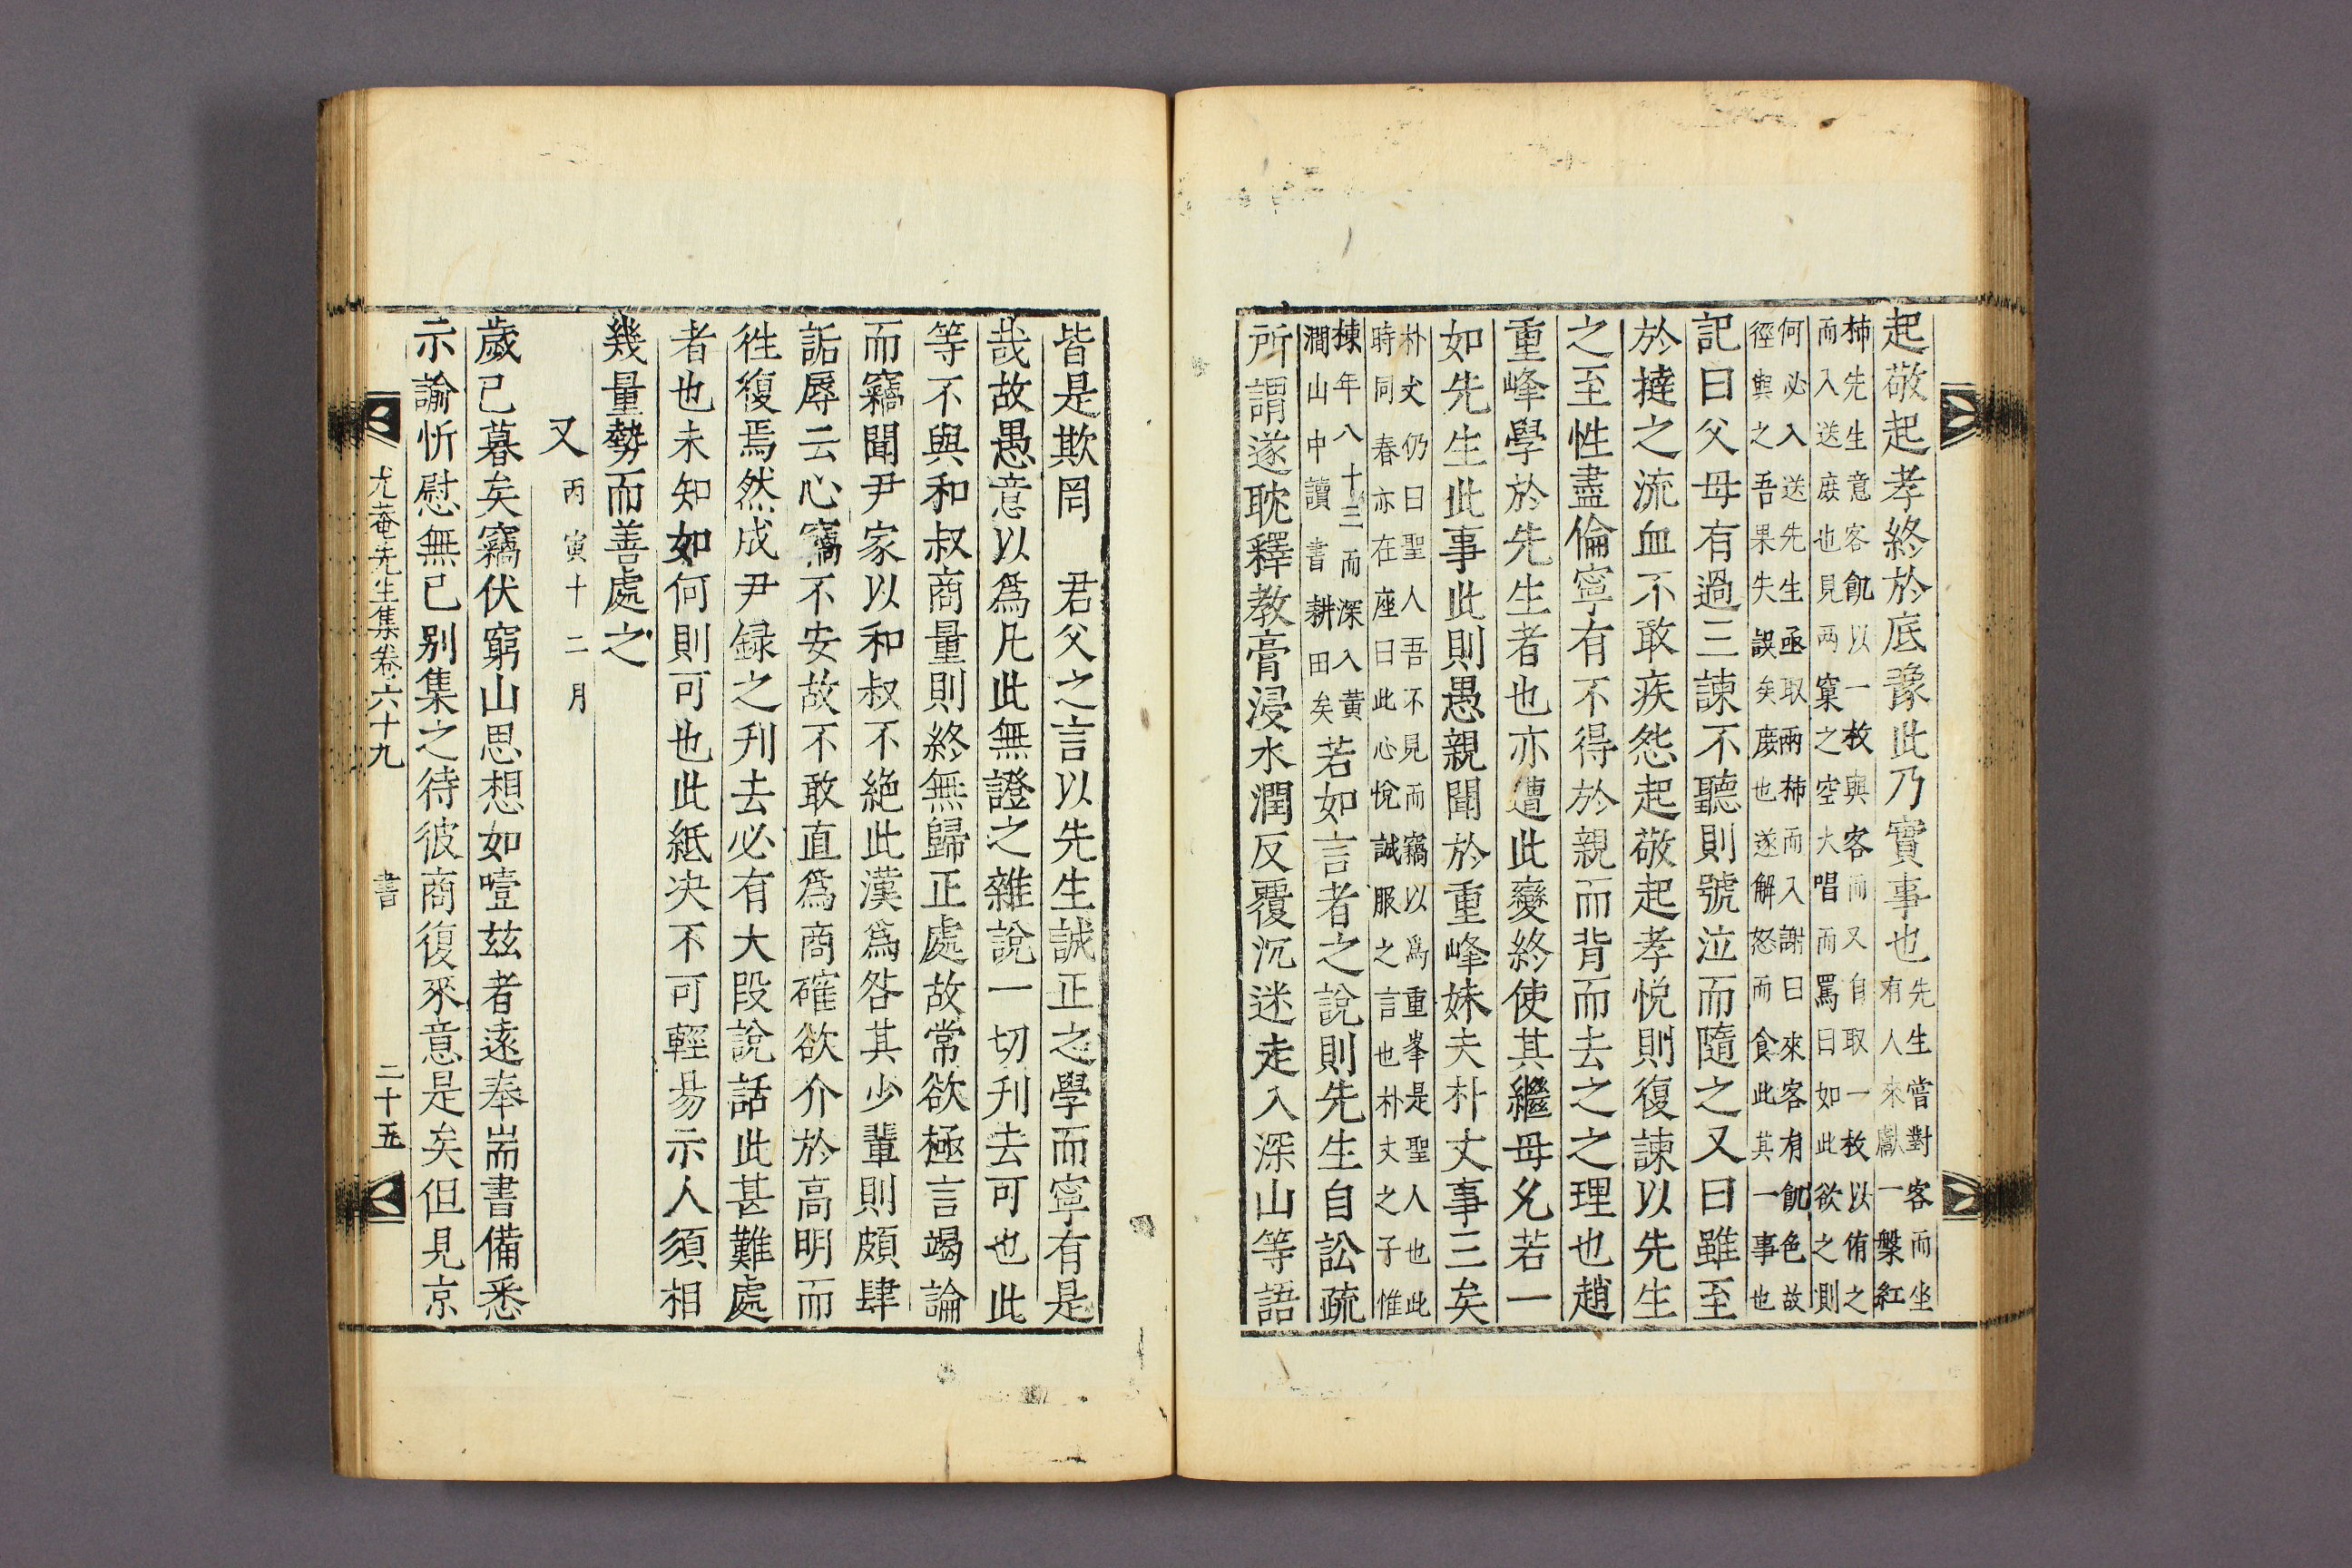 起敬起孝終於底豫此乃實事也先生嘗對客而坐
有人來獻一槃紅
柿先生意客飢以一枚與客而又自取一枚以侑之
而入送庶也見两窠之空大唱而罵曰如此欲之則
何必入送先生亟取兩柿而入謝曰來客有飢色故
徑與之吾果失誤矣庶也遂解怒而食此其一事也
記曰父母有過三諫不聽則號泣而隨之又曰雖至
於撻之流血不敢疾怨起敬起孝悅則復諫以先生
之至性盡倫寧有不得於親而背而去之之理也趙
重峰學於先生者也亦遭此變終使其繼母允若一
如先生此事此則愚親聞於重峰妹夫朴丈事三矣
朴丈仍曰聖人吾不見而竊以爲重峯是聖人也此
時同春亦在座曰此心悅誠服之言也朴丈之子惟
棟年八十三而深入黃
澗山中讀書耕田矣若如言者之說則先生自訟疏
所謂遂耽釋教膏浸水潤反覆沉迷走入深山等語
皆是欺罔　君父之言以先生誠正之學而寧有是
哉故愚意以爲凡此無證之雜說一切刊去可也此
等不與和叔商量則終無歸正處故常欲極言竭論
而竊聞尹家以和叔不絶此漢爲咎其少輩則頗肆
詬辱云心竊不安故不敢直爲商確欲介於高明而
徃復焉然成尹録之刊去必有大段說話此甚難處
者也未知如何則可也此紙决不可輕昜示人須相
幾量勢而善處之
又丙寅十二月
歲已暮矣竊伏窮山思想如噎玆者遠奉耑書備悉
示諭忻慰無已别集之待彼商復來意是矣但見京
尤菴先生集卷六十九　書　二十五